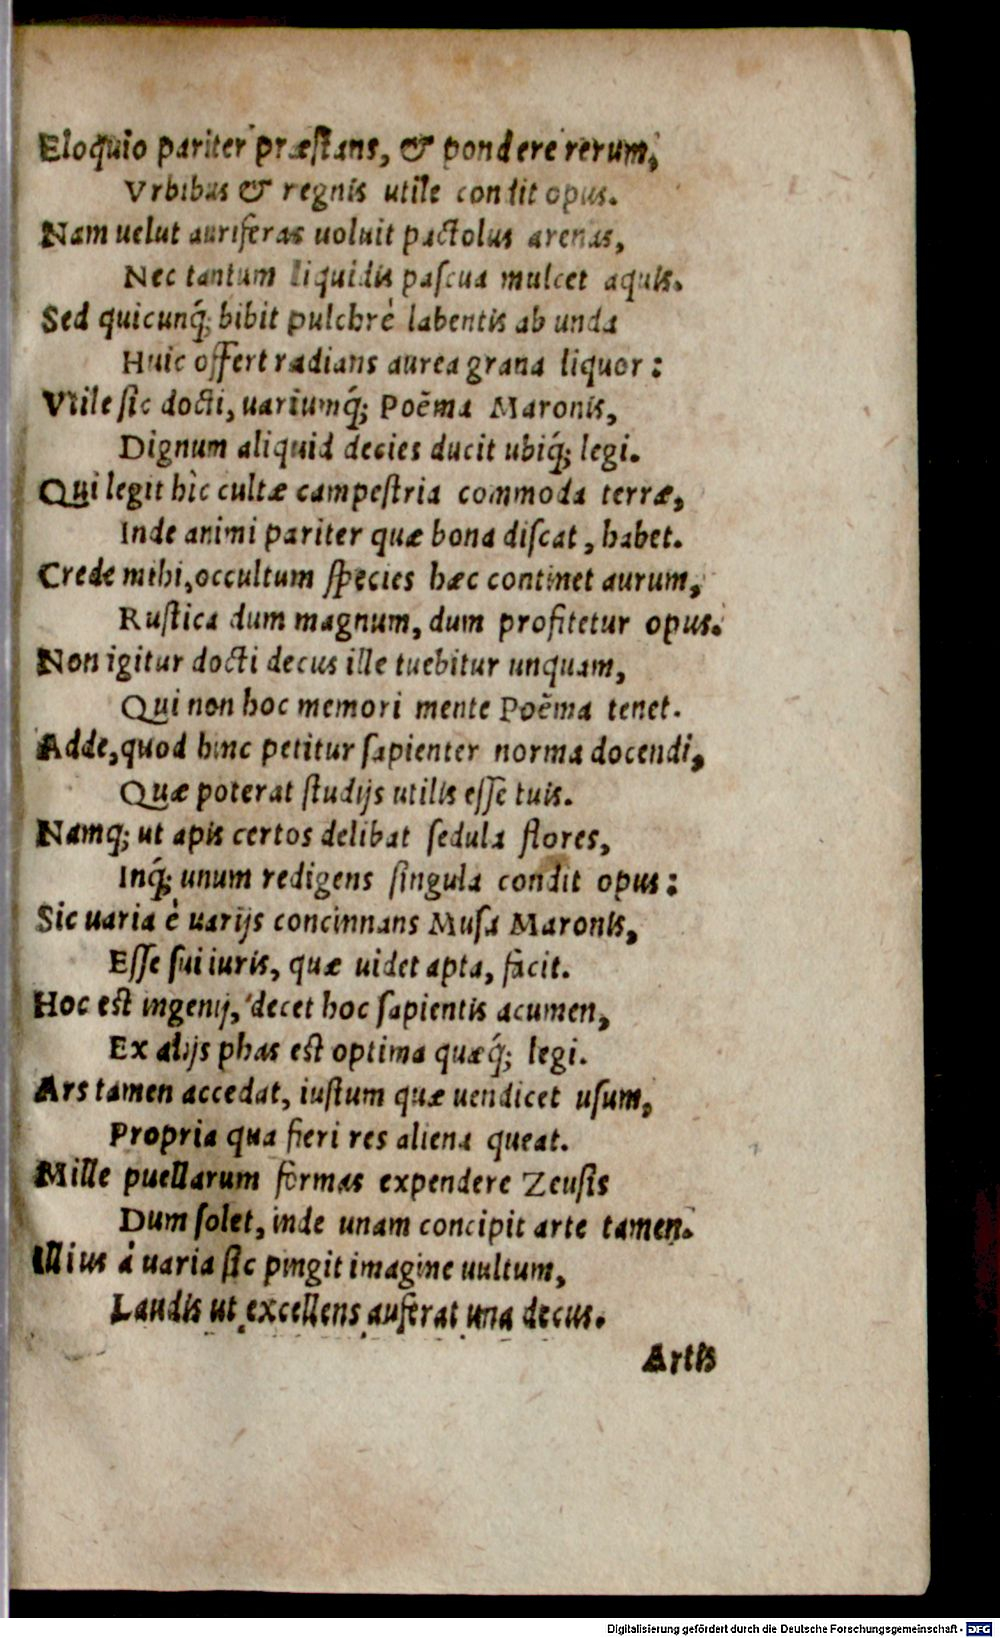 Eloquio pariter præſtans, & pondere rerum,
Vrbibus & regnis utile condit opus.
Nam uelut auriferas uoluit pactolus arenas,
Nec tantum liquidis paſcua mulcet aquis.
Sed quicunq́; bibit pulchrè labentis ab unda
Huic offert radians aurea grana liquor:
Vtile ſic docti, uariumq́; Poẽma Maronis,
Dignum aliquid decies ducit ubiq́; legi.
Qui legit hìc cultæ campeſtria commoda terræ,
Inde animi pariter quæ bona diſcat, habet.
Crede mihi, occultum ſpecies hæc continet aurum,
Ruſtica dum magnum, dum profitetur opus.
Non igitur docti decus ille tuebitur unquam,
Qui non hoc memori mente Poẽma tenet.
Adde, quod hinc petitur ſapienter norma docendi,
Quæ poterat ſtudijs utilis eſſe tuis.
Namq; ut apis certos delibat ſedula flores,
Inq́; unum redigens ſingula condit opus:
Sic uaria è uarijs concinnans Muſa Maronis,
Eſſe ſui iuris, quæ uidet apta, facit.
Hoc eſt ingenij, decet hoc ſapientis acumen,
Ex alijs phas eſt optima quæq́; legi.
Ars tamen accedat, iuſtum quæ uendicet uſum,
Propria qua fieri res aliena queat.
Mille puellarum formas expendere Zeuſis
Dum ſolet, inde unam concipit arte tamen.
Illius á uaria ſic pingit imagine uultum,
Laudis ut excellens auferat una decus.
Artis
Digitalisierung gefördert durch die Deutsche Forschungsgemeinschaft - DFG